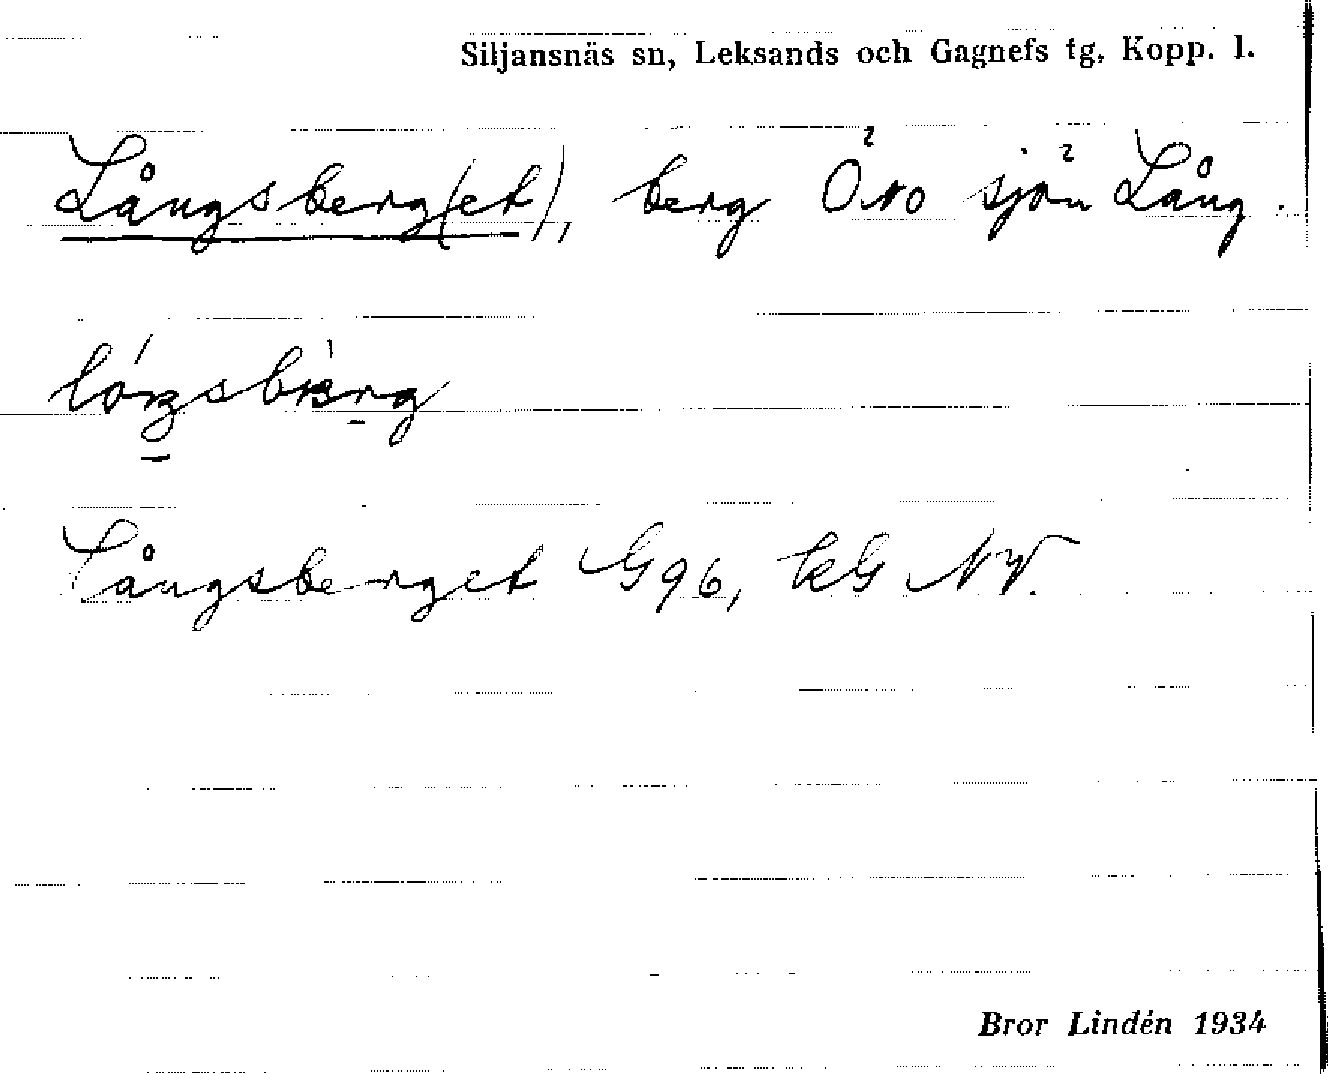 Siljansnäs sn, Leksands och Gagnefs tg. Kopp. l.
Långsberg(et), berg Ö sjön Lång.
Långsberget G96, kG NV.
Bror Lindén 1934